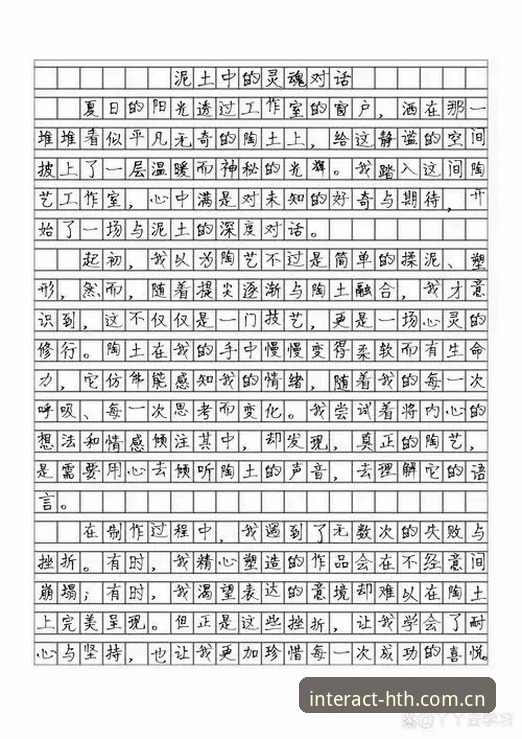 泥土中的灵魂对话
夏日的阳光透过工作室的窗户，洒在那一
堆堆看似平凡无奇的陶土上，给这静谧的空间
披上了一层温暖而神秘的光辉。我踏入这间陶
艺工作室，心中满是对未知的好奇与期待，开
始了一场与泥土的深度对话。
起初，我以为陶艺不过是简单的揉泥、塑
形，然而，随着提尖逐渐与陶土融合，我才意
识到，这不仅仅是一门技艺，更是一场心灵的
修行。陶土在我的手中慢慢变得柔软而有生命
力，它仿佛能感知我的情绪，随着我的每一次
呼吸、每一次思考而变化。我尝试着将内心的
想法和情感倾注其中，却发现，真正的陶艺，
是需要用心去倾听陶土的声音，去理解它的语
言。
在制作过程中，我遇到了无数次的失败与
挫折。有时，我精心塑造的作品会在不经意间
崩塌；有时，我渴望表达的意境却难以在陶土
上完美呈现。但正是这些挫折，让我学会了耐
心与坚持，也让我更加珍惜每一次成功的喜悦。
interact-hth.com.cn